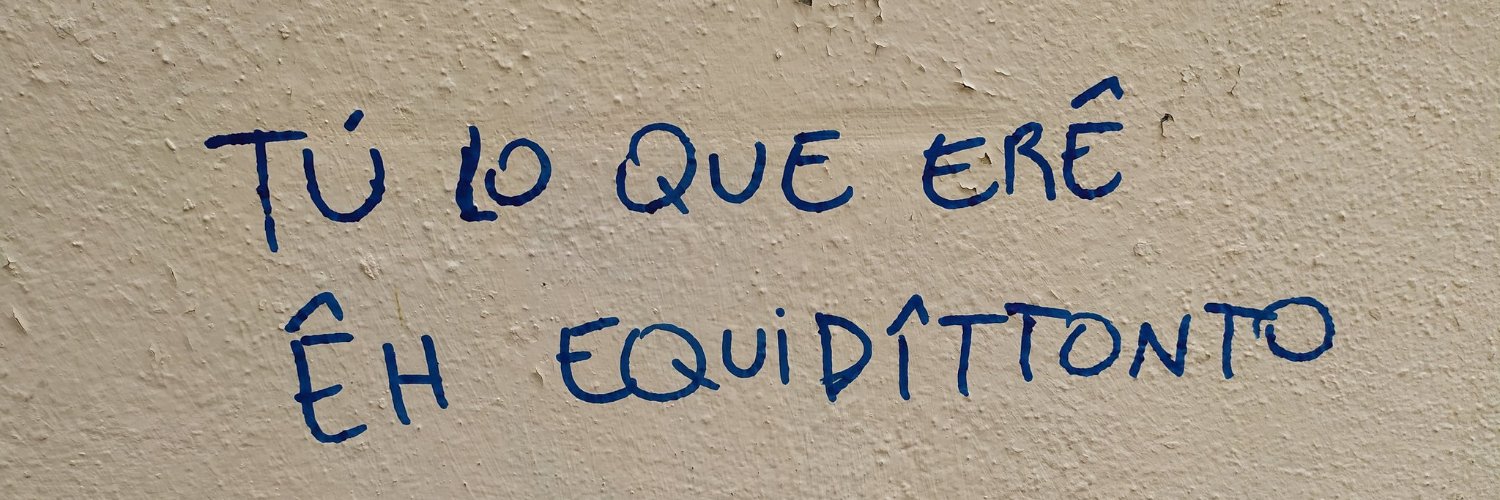 TÚ LO QUE ERÊ
ÊH EQUIDÎTTONTO